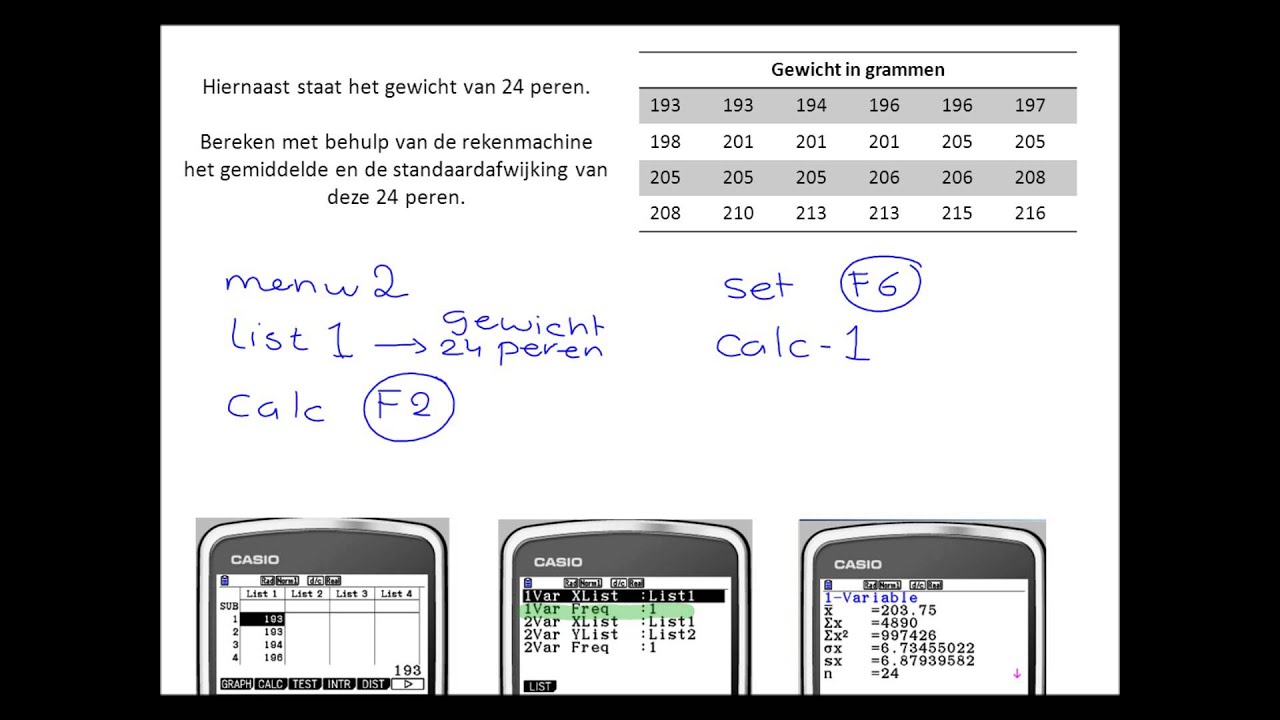 Hiernaast staat het gewicht van 24 peren.
Bereken met behulp van de rekenmachine
het gemiddelde en de standaardafwijking van
deze 24 peren.
Gewicht in grammen
193 193 194 196 196 197
198 201 201 201 205 205
205 205 205 206 206 208
208 210 213 213 215 216
menu 2
list 1 → gewicht
24 peren
calc F2
set F6
calc - 1
CASIO
Rad Norm1 d/c Real
List 1 List 2 List 3 List 4
SUB
1 193
2 193
3 194
4 196
193
GRAPH CALC TEST INTR DIST ▷
CASIO
Rad Norm1 d/c Real
1Var XList :List1
1Var Freq :1
2Var XList :List1
2Var YList :List2
2Var Freq :1
LIST
CASIO
Rad Norm1 d/c Real
1-Variable
x̄ =203.75
Σx =4890
Σx² =997426
σx =6.73455022
sx =6.87939582
n =24 ↓